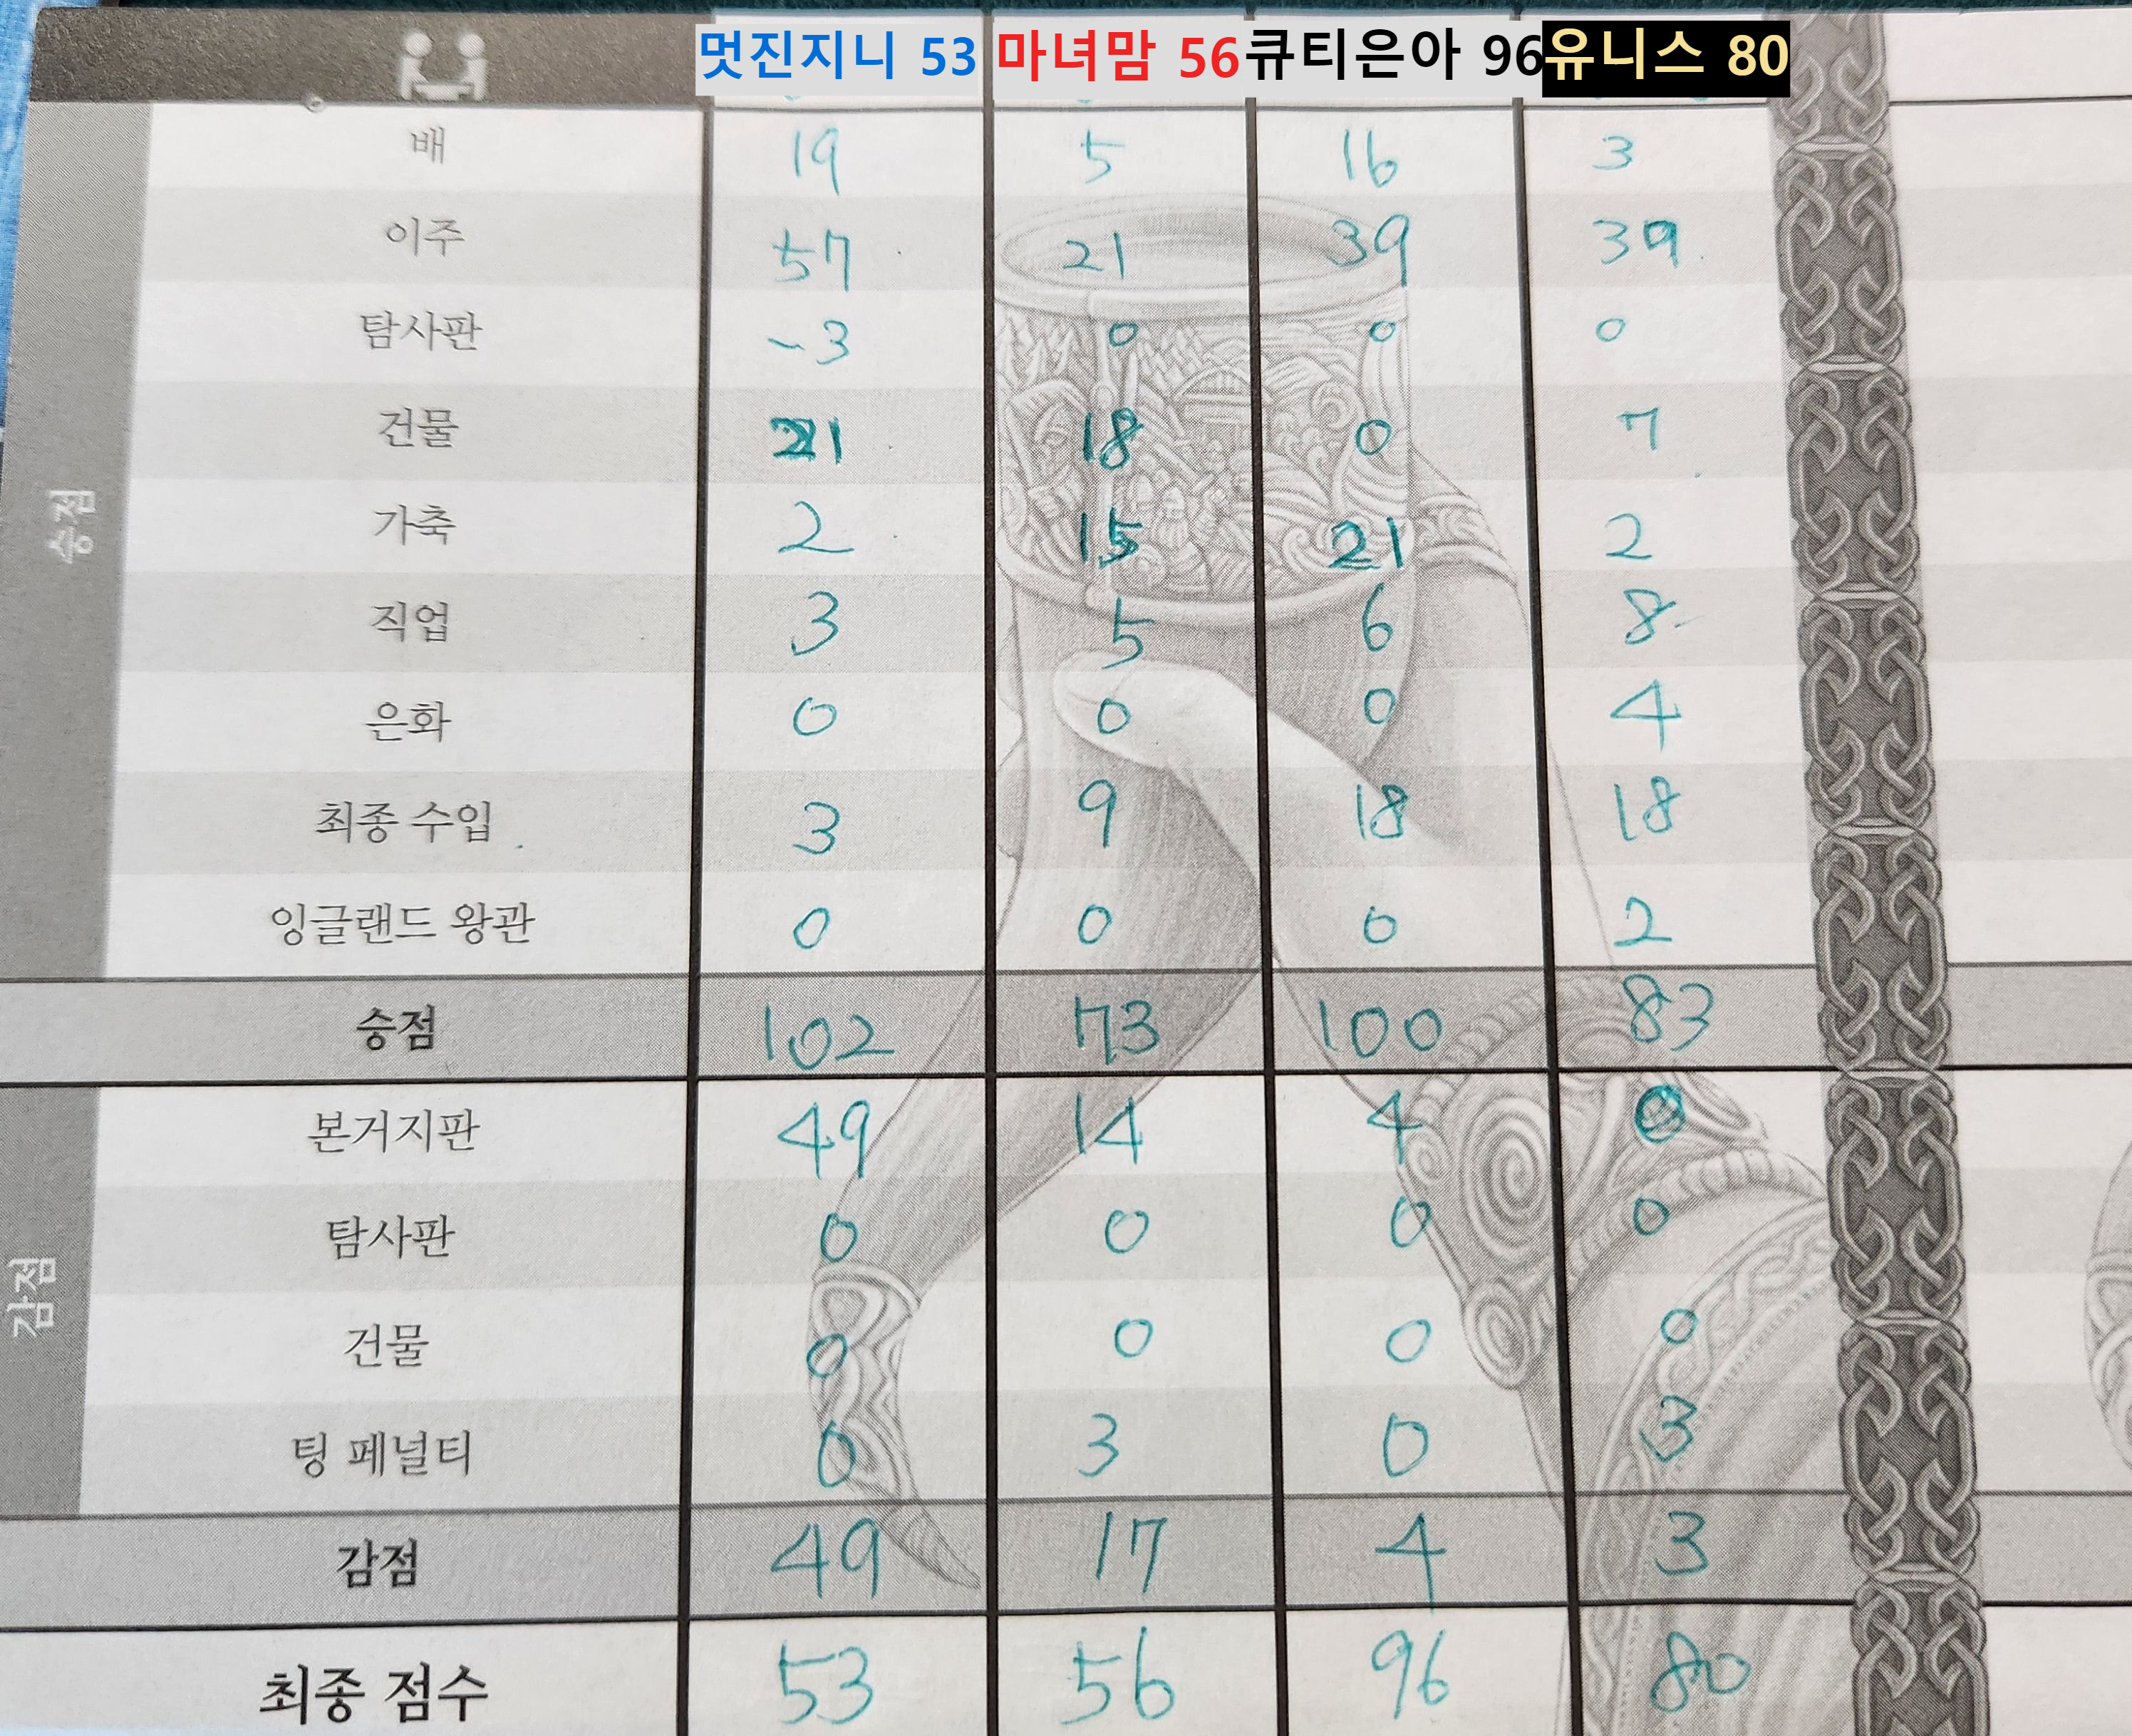 멋진지니 53 마녀맘 56 큐티은아 96 유니스 80
승점
배 19 5 16 3
이주 57 21 39 39
탐사판 -3 0 0 0
건물 21 18 0 7
가축 2 15 21 2
직업 3 5 6 8
은화 0 0 0 4
최종 수입 3 9 18 18
잉글랜드 왕관 0 0 0 2
승점 102 73 100 83
감점
본거지판 49 14 4 0
탐사판 0 0 0 0
건물 0 0 0 0
팅 페널티 0 3 0 3
감점 49 17 4 3
최종 점수 53 56 96 80